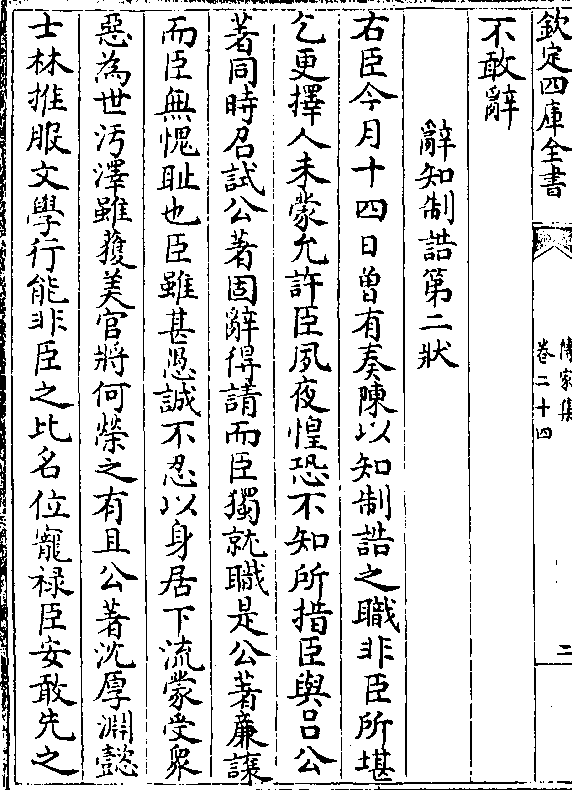 欽定四庫全書
傳家集
卷二十四
二
不敢辭
辭知制誥第二狀
右臣今月十四日曾有奏陳以知制誥之職非臣所堪
乞更擇人未蒙允許臣夙夜惶恐不知所措臣與呂公
著同時召試公著固辭得請而臣獨就職是公著廉讓
而臣無愧耻也臣雖甚愚誠不忍以身居下流蒙受衆
惡為世汚澤雖獲美官將何榮之有且公著沈厚淵懿
士林推服文學行能非臣之比名位寵禄臣安敢先之